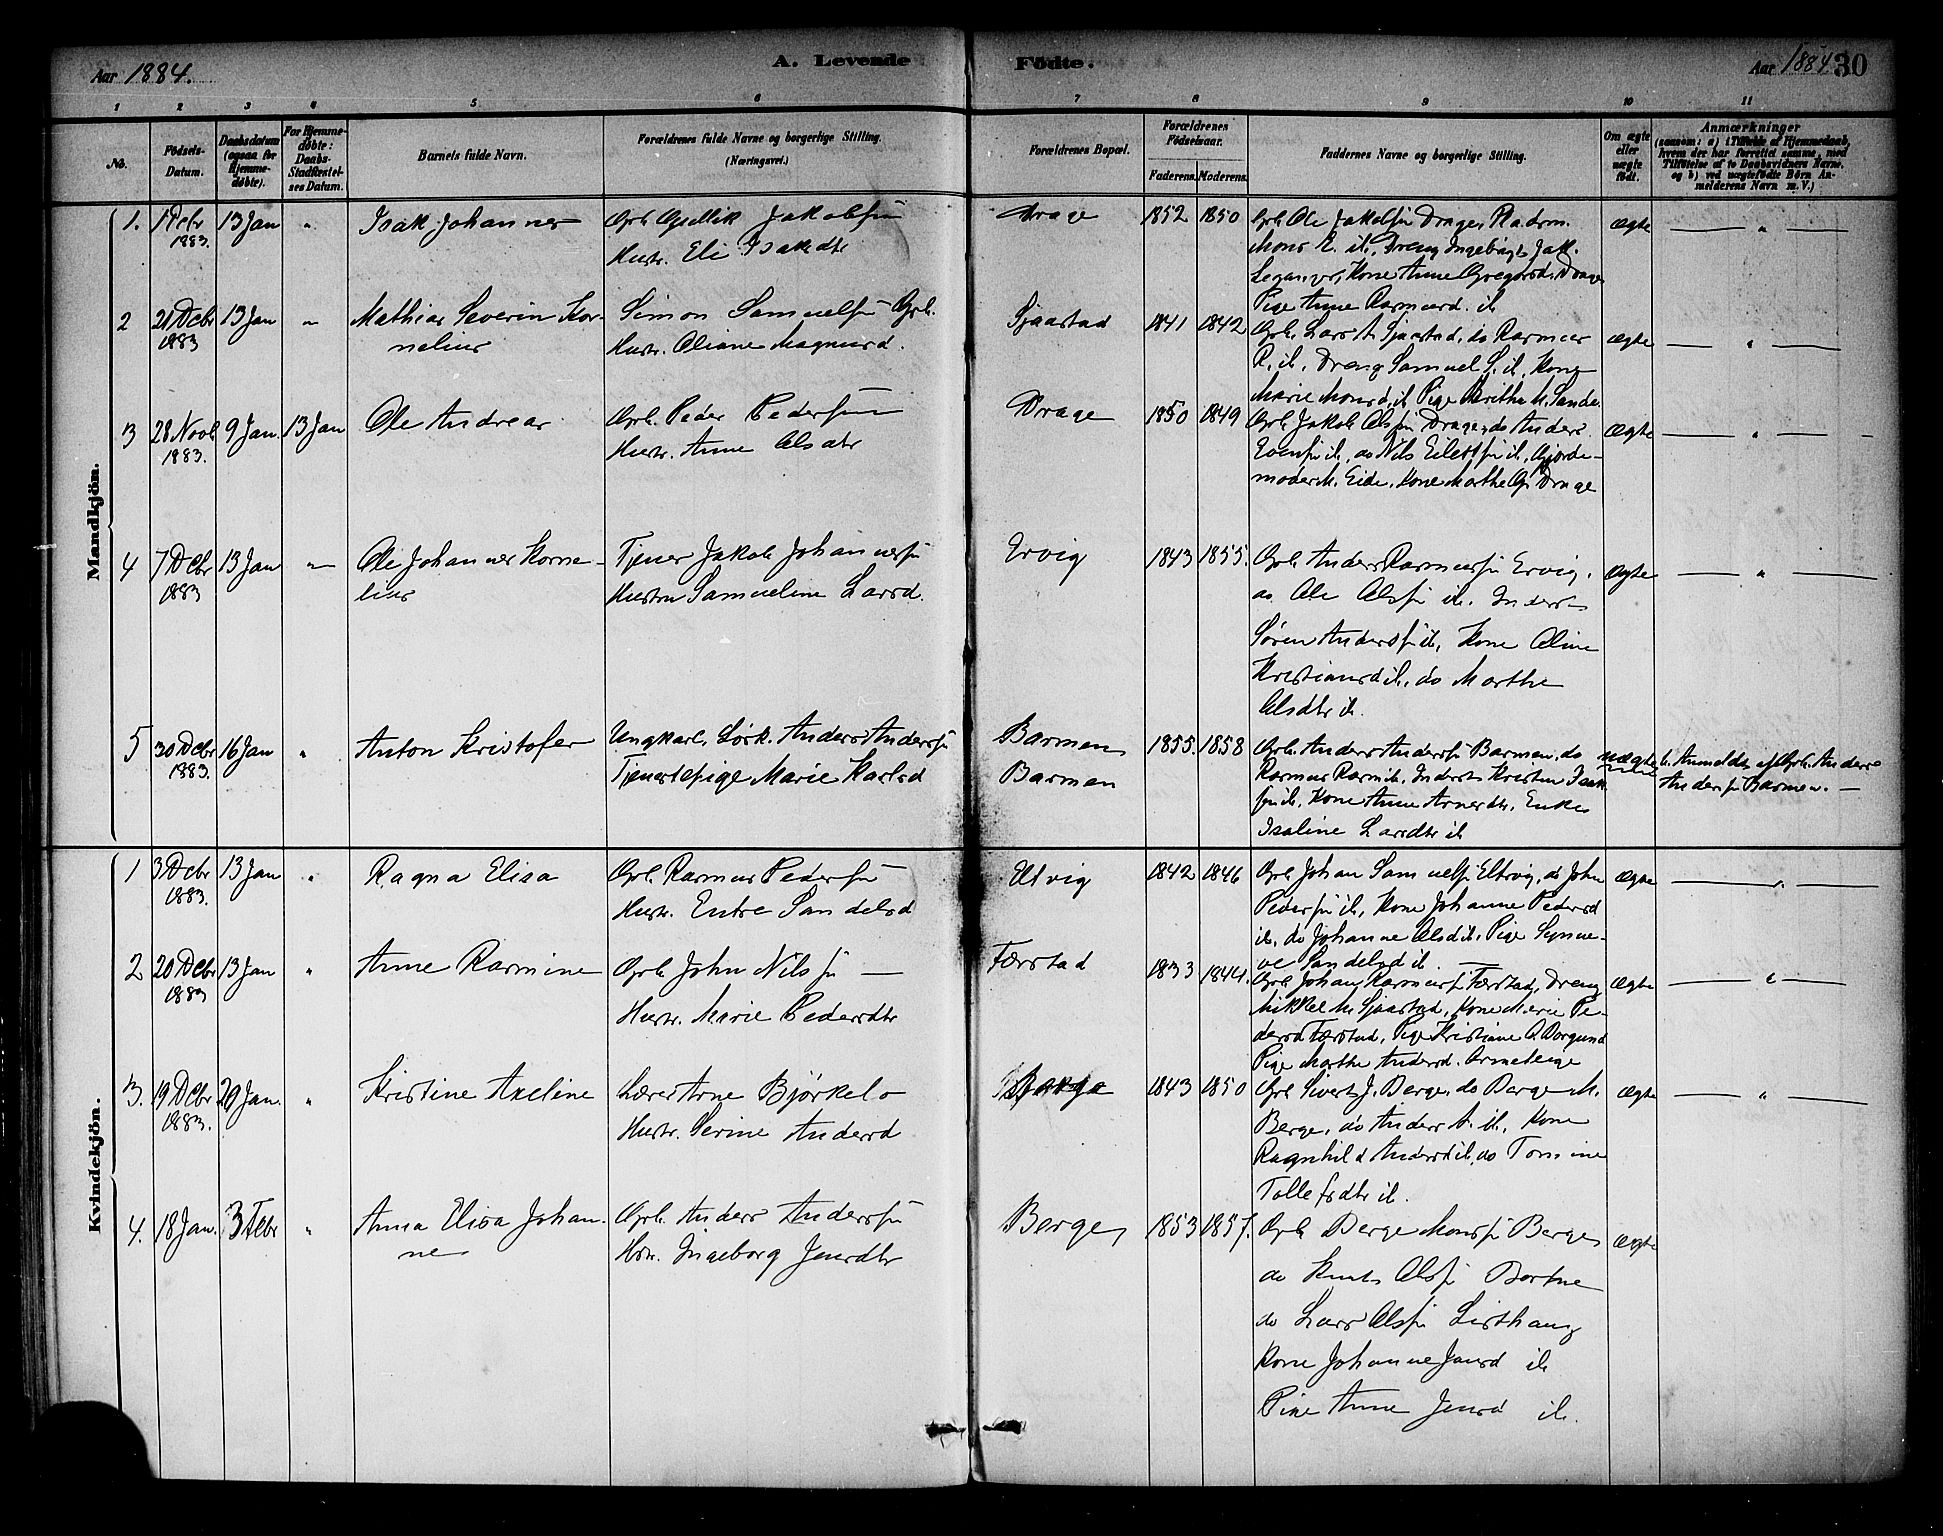 Aar 1884.
A. Levende Fødte.
Aar 1884 30
1 2 3 4 5 6 7 8 9 10 11
No.
Fødsels-Datum.
Daabsdatum (ogsaa for Hjemmedøbte).
For Hjemmedøbte: Daabs-Stadfæstelses Datum.
Barnets fulde Navn.
Forældrenes fulde Navne og borgerlige Stilling.
(Næringsvei.)
Forældrenes Bopæl.
Forældrenes Fødselsaar.
Faderens. Moderens.
Faddernes Navne og borgerlige Stilling.
Om ægte eller uægte født.
Anmærkninger
(saasom: a) i Tilfælde af Hjemmedaab, hvem der har forrettet samme, med Tilføielse af to Daabsvidners Navne, og b) ved uægtefødte Børn Anmelderens Navn m. V.)
Mandkjøn.
1. 1 Dcbr 1883. 13 Jan "
Isak Johannes
Grb. Gjellik Jakobsøn
Hustr. Eli Isakdtr
Drage 1852 1850
Grb. Ole Jakobsøn Drage, Rasm.
Mons E. ib., Dreng Ingebrigt Jak.
Leganger, Kone Anne Gregorsd. Drage
Pige Anne Rasmusd. ib
ægte — " —
2 21 Dcbr 1883 13 Jan "
Mathias Severin Kor-
nelius
Simon Samuelsøn Grb.
Hustr. Oliane Magnusd.
Sjaastad 1841 1842
Grb. Lars A. Sjaastad, do Rasmus
R. ib., Dreng Samuel S. ib, Kone
Marie Monsd. ib, Pige Brithe M. Sande.
ægte — " —
3 28 Novb 1883. 9 Jan. 13 Jan
Ole Andreas
Grb. Peder Pedersøn
Hustr. Anne Olsdtr
Drage 1850 1849
Grb. Jakob Olsøn Drage, do Anders
Evensøn ib, do Nils Eilertsøn ib., Gjorde-
moder M. Eide, Kone Marthe G. Drage
ægte — " —
4 7 Dcbr 1883 13 Jan "
Ole Johannes Korne-
lius
Tjener Jakob Johannessøn
Hustru Samueline Larsd.
Ervig 1843 1855.
Grb. Anders Rasmussøn Ervig.
do. Ole Olsøn ib. Inderst
Søren Andersøn ib, Kone Oline
Kristiansd ib, do Marthe
Olsdtr ib.
ægte — " —
5 30 Dcbr 1883. 16 Jan "
Anton Kristofer
Ungkarl, Anders Andersøn
Tjenestepige Marie Karlsd
Barmen
Barmen
1855. 1858
Grb. Anders Andersøn Barmen, do
Rasmus Rasm ib, Inderst Kristen Isak-
søn ib, Kone Anne Arnesdtr, Enke
Isaline Larsdtr ib
uægte b. Anmeldt af Grb. Anders
Andersøn Barmen. —
Kvindekjøn.
1 3 Dcbr 1883. 13 Jan "
Ragna Elisa
Grb. Rasmus Pedersøn
Hustr. Entre Sandelsd
Eltvig 1842 1846
Grb. Johan Samuelsøn Eltvig, do John
Pedersøn ib, Kone Johanne Pedersd
ib, do Johanne Olsd ib, Pige Synne-
ve Sandelsd ib —
ægte — " —
2 20 Dcbr 1883 13 Jan "
Anne Rasmine
Grb. John Nilsøn —
Hustr. Marie Pedersdtr
Færstad 1833 1844.
Grb. Johan Rasmussøn Færstad, Dreng
Mikkel M. Sjaastad, Kone Marie Pe-
dersd Færstad, Pige Kristiane O. Borgund
Pige Marthe Andersd.
ægte — " —
3. 19 Dcbr 1883. 29 Jan. "
Kristine Axeline
Lærer Arne Bjørkelo
Hustr. Serine Andersd
Berge 1843 1850
Grb Sivert J. Berge, do Berge M.
Berge, do Anders A. ib, Kone
Ragnhild Andersd ib, do Tomine
Tollefsdtr ib.
ægte — " —
4. 18 Jan. 3 Febr "
Anna Elisa Johan-
ne
Grb. Anders Andersøn
Hstr. Ingeborg Jensdtr
Berge, 1853 1857.
Grb Berge Monsøn Berge
do Knut Olsøn Bortne
do Lars Olsøn Listhaug
Kone Johanne Jensd ib
Pike Anne Jensd ib.
ægte